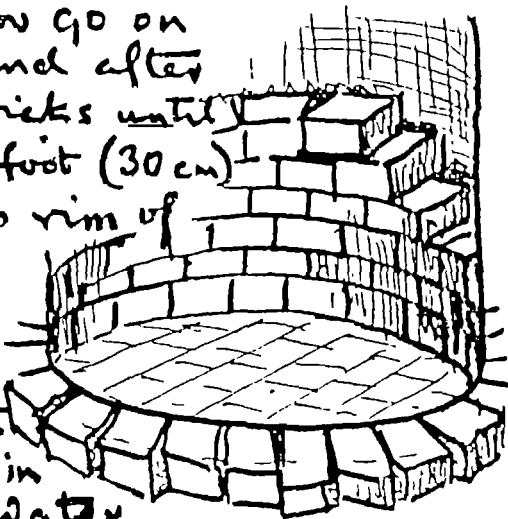 go on
and after
bricks until
foot (30 cm)
rim of
in
water